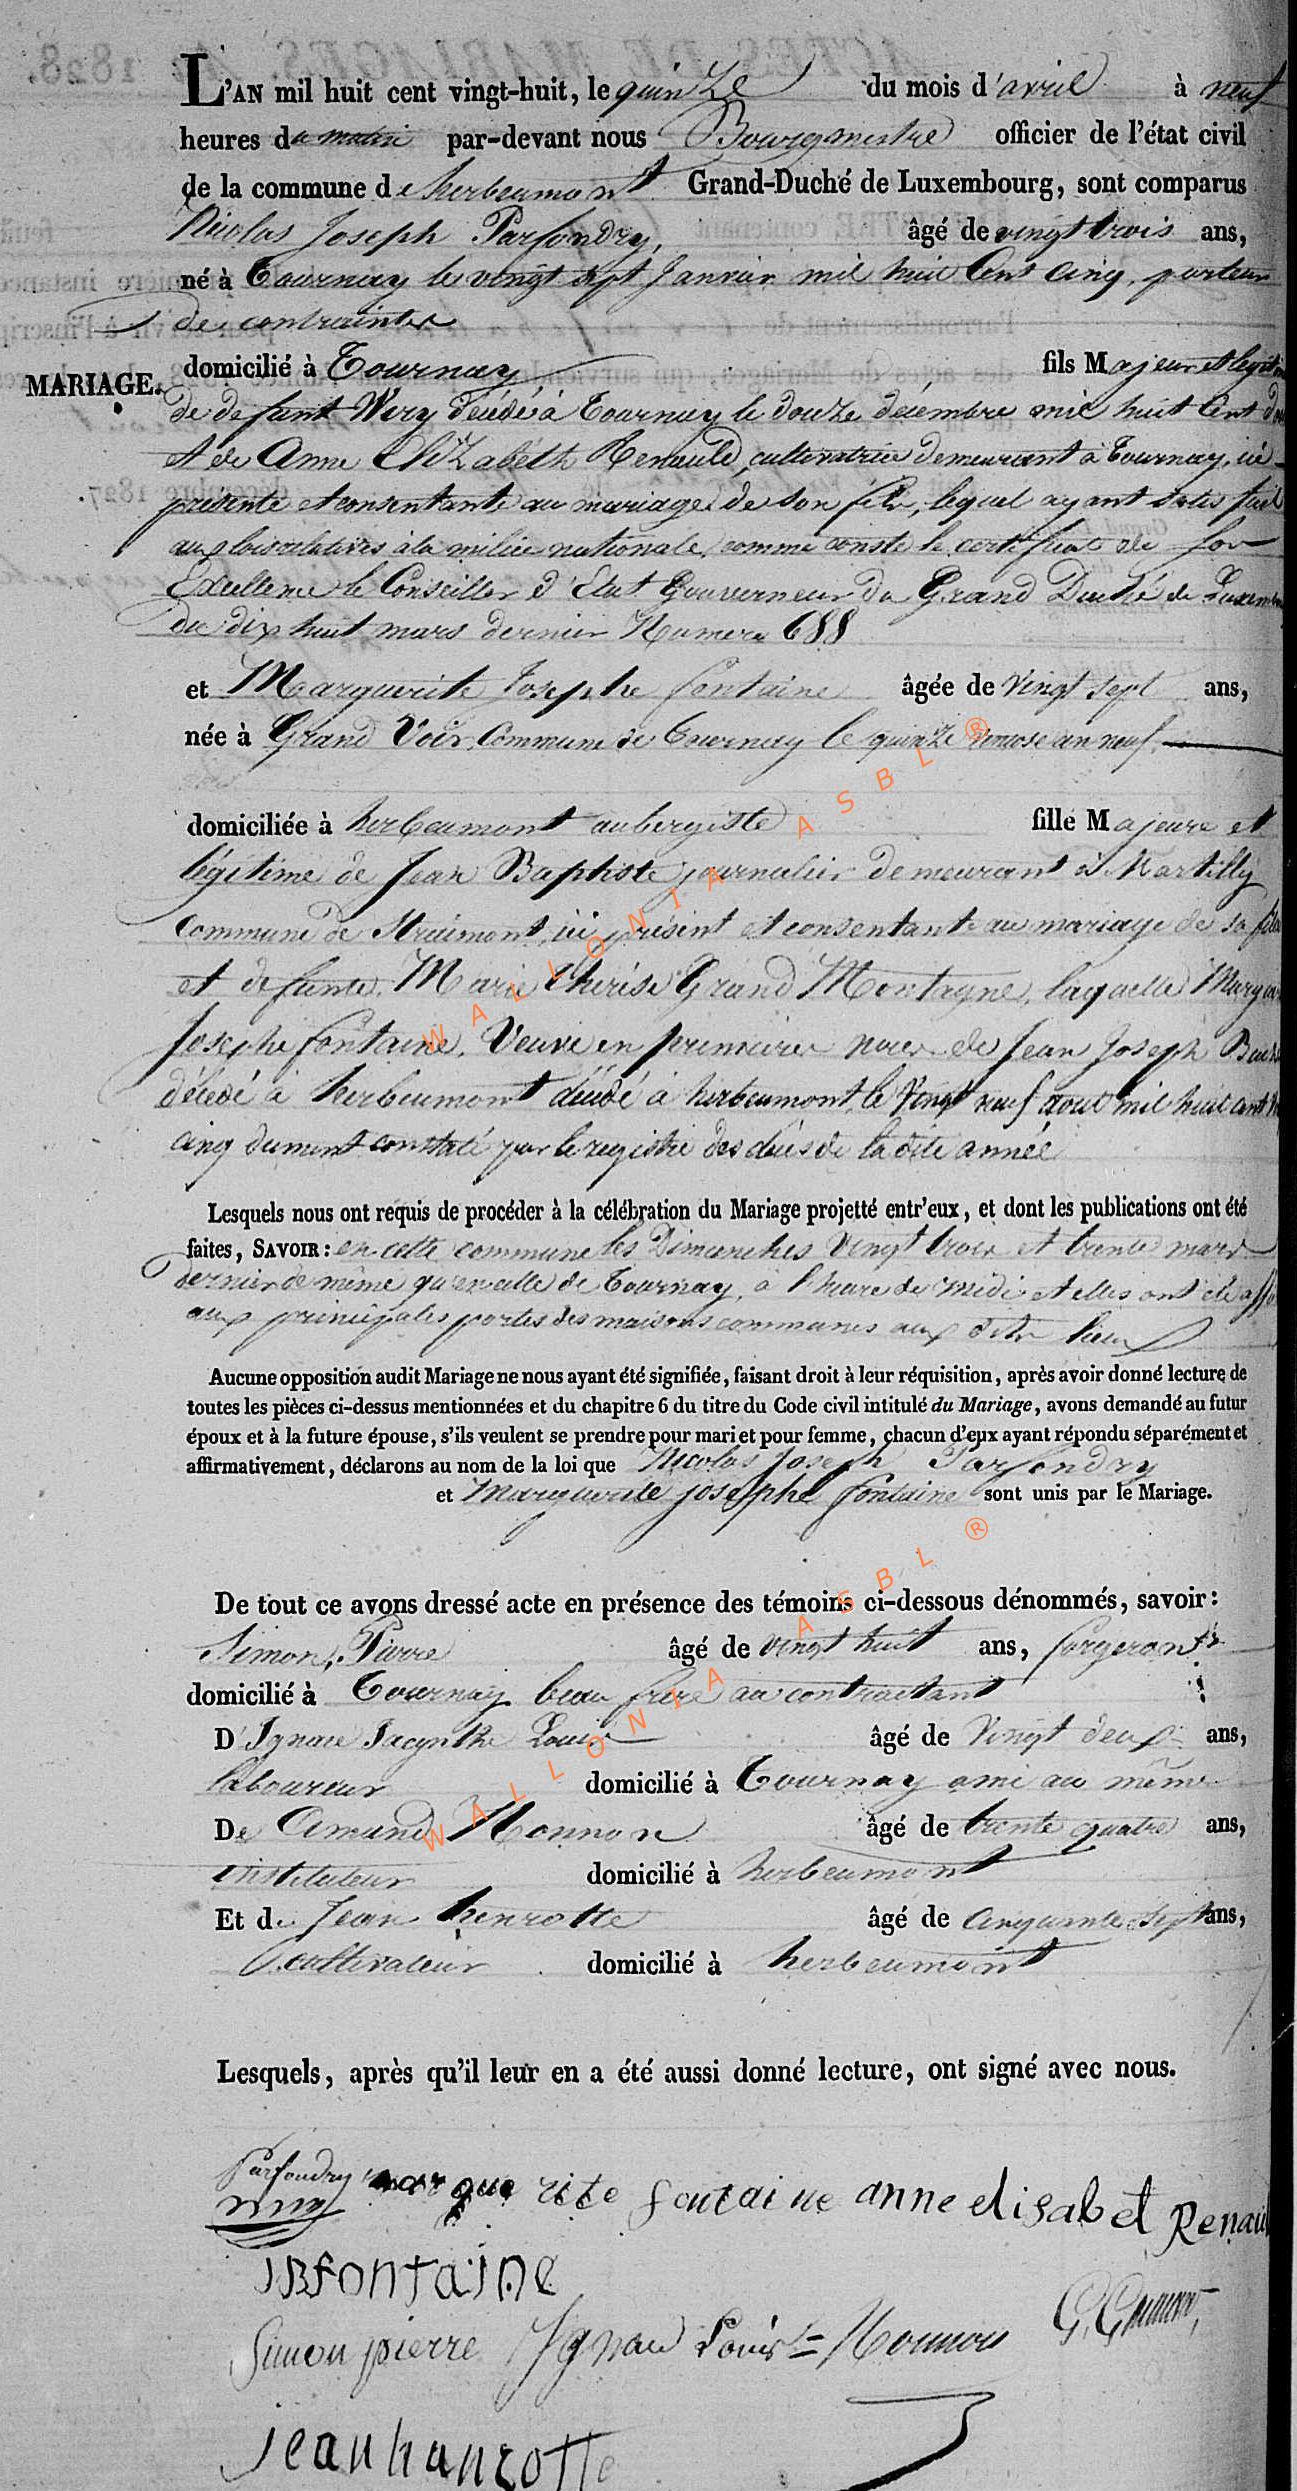 L'AN mil huit cent vingt-huit, le quinze du mois d'avril à neuf
heures du matin par-devant nous Bourgmestre officier de l'état civil
de la commune de herbeumont Grand-Duché de Luxembourg, sont comparus
Nicolas Joseph Parfondry, âgé de vingt trois ans,
né à Tournay le vingt sept Janvier mil huit Cent Cinq, porteur
de contraintes
MARIAGE.
domicilié à Tournay fils Majeur et légitime
de defunt Wery décédé à Tournay le douze décembre mil huit Cent
et de Anne Elizabeth Renauld, cultivatrice demeurant à Tournay, ici
présente et consentante au mariage de son fils, lequel ayant satisfait
aux lois relatives à la milice nationale, comme conste le certificat de son
Excellence le Conseiller d'Etat Gouverneur du Grand Duché de
du dix huit mars dernier Numero 688
et Marguerite Josephe fontaine âgée de Vingt sept ans,
née à Grand Voir, Commune de Tournay le quinze an neuf.
domiciliée à herbeumont aubergiste fille Majeure et
légitime de Jean Baptiste journalier demeurant à Martilly
Commune de Straimont, ici présent et consentant au mariage de sa fille
et de defunte Marie Thérèse Grand Montagne, laquelle
Josephe fontaine, Veuve en premières noces de Jean Joseph
décédé à herbeumont décédé à herbeumont le Vingt neuf aout mil huit cent
cinq dument constaté par le registre des décès de la dite année
Lesquels nous ont requis de procéder à la célébration du Mariage projetté entr'eux, et dont les publications ont été
faites, SAVOIR: en cette commune les Dimanches Vingt trois et trente mars
dernier de même qu'en celle de Tournay, à l'heure de midi et elles ont été
aux principales portes des maisons communes aux dits lieux
Aucune opposition audit Mariage ne nous ayant été signifiée, faisant droit à leur réquisition, après avoir donné lecture de
toutes les pièces ci-dessus mentionnées et du chapitre 6 du titre du Code civil intitulé du Mariage, avons demandé au futur
époux et à la future épouse, s'ils veulent se prendre pour mari et pour femme, chacun d'eux ayant répondu séparément et
affirmativement, déclarons au nom de la loi que Nicolas Joseph Parfondry
et Marguerite josephe fontaine sont unis par le Mariage.
De tout ce avons dressé acte en présence des témoins ci-dessous dénommés, savoir:
Simon, Pierre âgé de vingt huit ans, forgeron
domicilié à Tournay beau frere au contractant
D'Ignace Jacynthe Louis âgé de Vingt deux ans,
laboureur domicilié à Tournay ami au même
De Amand Monnon âgé de trente quatre ans,
instituteur domicilié à herbeumont
Et de Jean henrotte âgé de cinquante sept ans,
Cultivateur domicilié à herbeumont
Lesquels, après qu'il leur en a été aussi donné lecture, ont signé avec nous.
Parfondry marguerite fontaine anne elisabet Renaul
JBfontaine
Simon pierre Ignace Louis Monnon
jean hanrotte
WALLONIA ASBL ®
WALLONIA ASBL ®